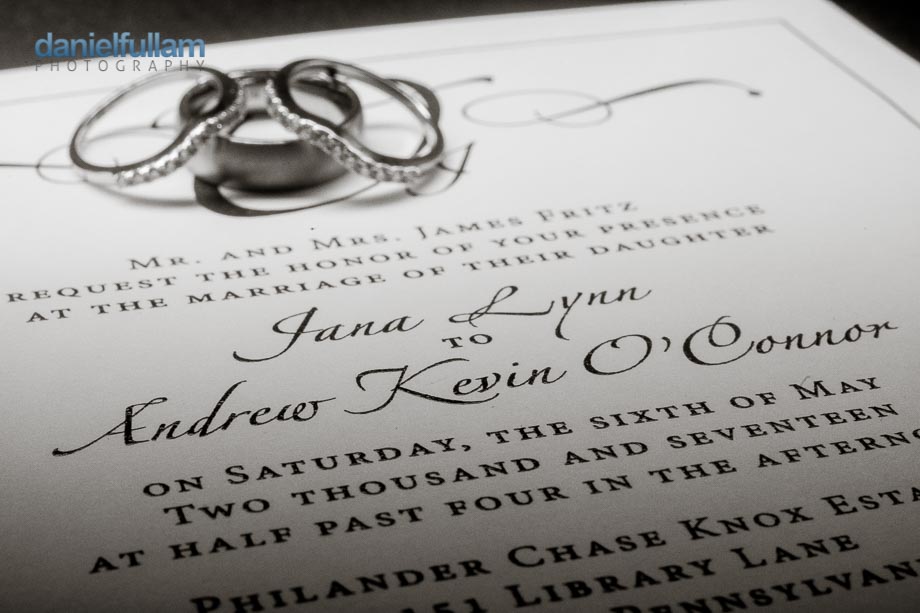 danielfullam
PHOTOGRAPHY
Mr. and Mrs. James Fritz
request the honor of your presence
at the marriage of their daughter
Jana Lynn
to
Andrew Kevin O'Connor
on Saturday, the sixth of May
Two thousand and seventeen
at half past four in the afterno
Philander Chase Knox Esta
151 Library Lane
Pennsylvan